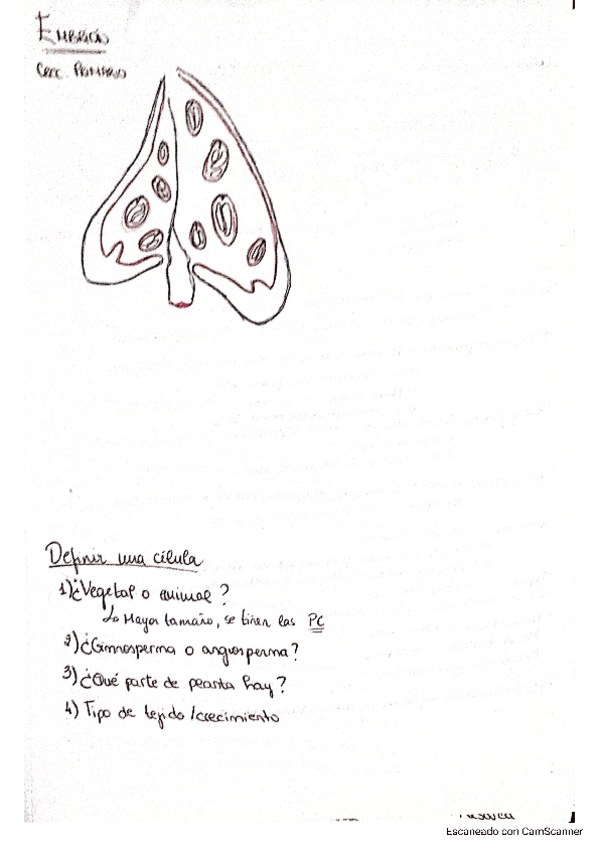 Embrión
Crec. Primario
Definir una célula
1) ¿Vegetal o animal?
↳ Mayor tamaño, se tiñen las PC
2) ¿Gimnosperma o angiosperma?
3) ¿Qué parte de planta hay?
4) Tipo de tejido / crecimiento
Escaneado con CamScanner